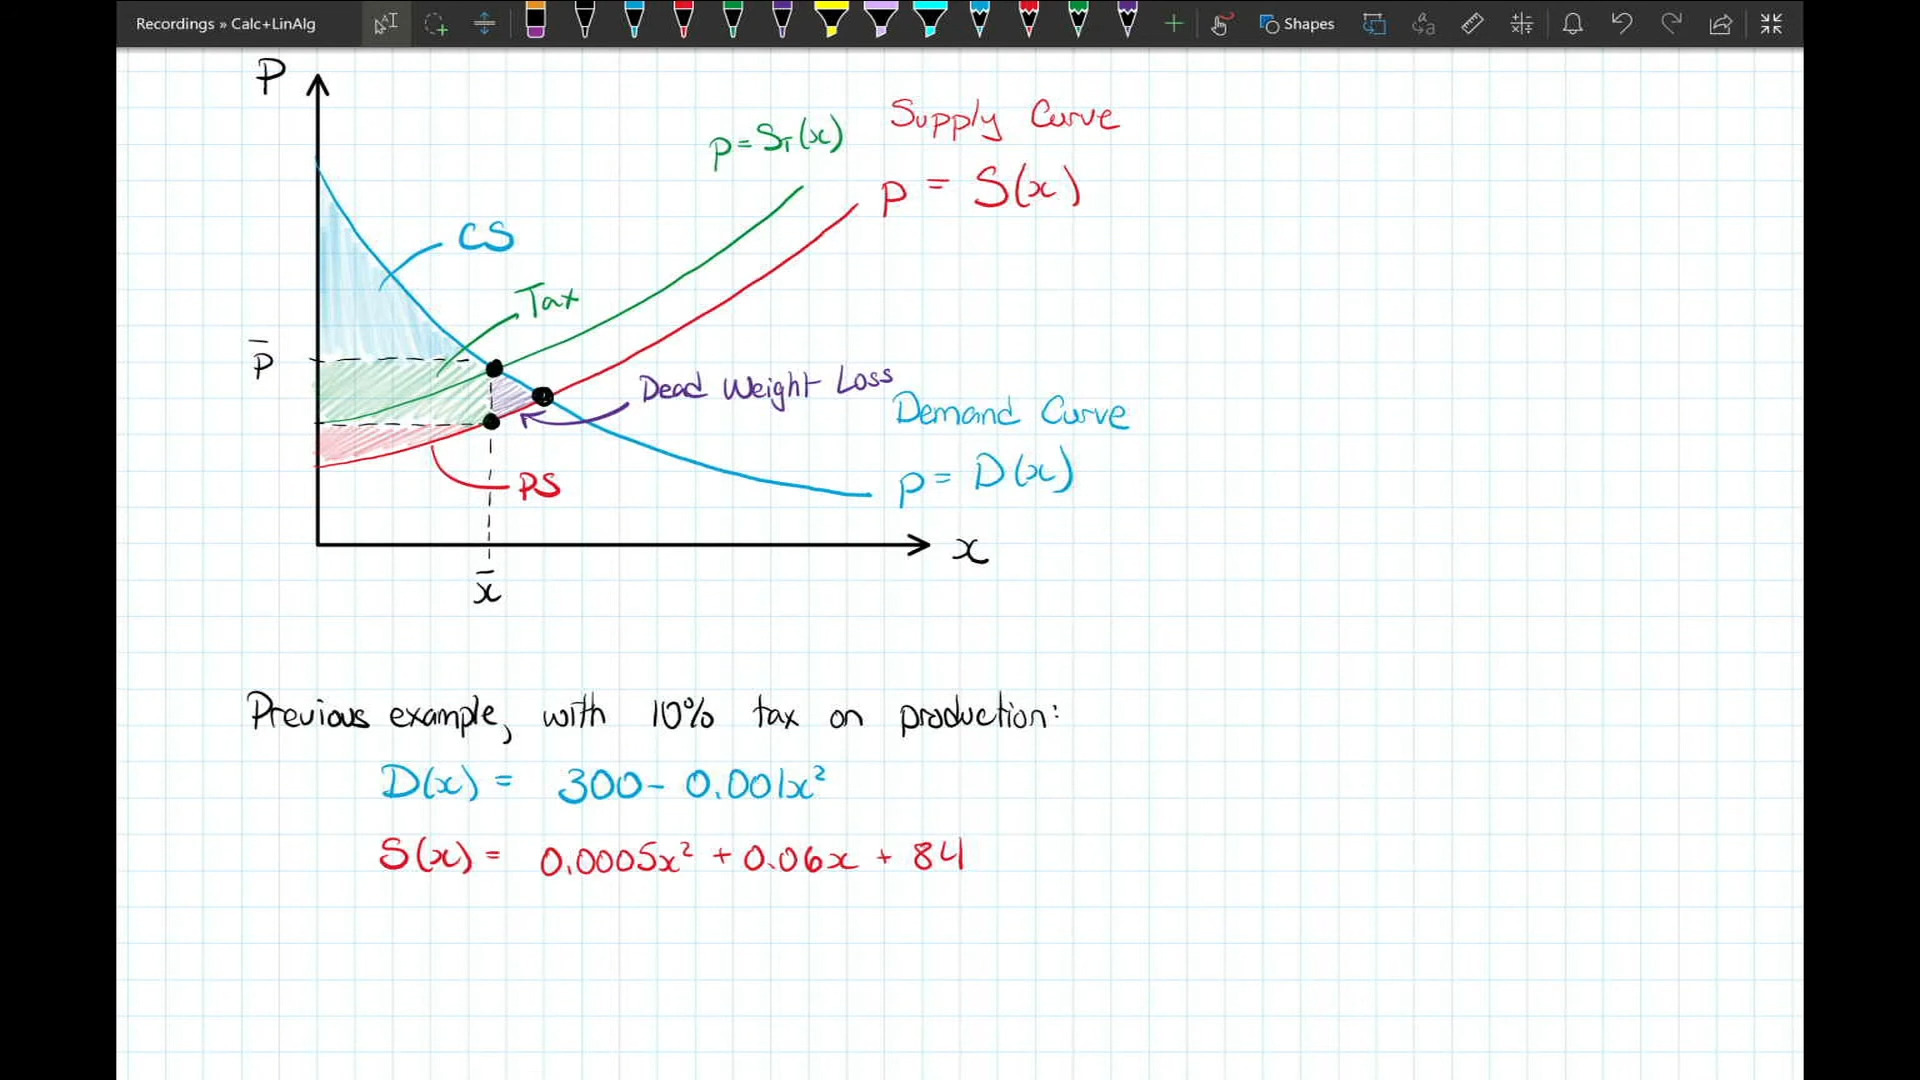 Recordings » Calc+LinAlg
Shapes
P
p = S_T(x)
Supply Curve
p = S(x)
CS
Tax
p̄
Dead Weight Loss
Demand Curve
p = D(x)
PS
x
x̄
Previous example, with 10% tax on production:
D(x) = 300 - 0.001x²
S(x) = 0.0005x² + 0.06x + 84